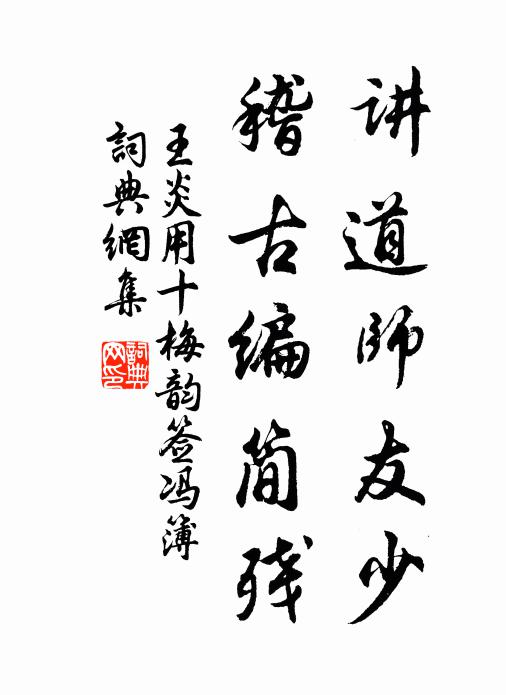 讲道師友少
稽古编简残
王炎用十梅韵签冯簿
詞典網集
詞典网印